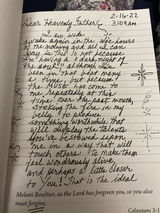 2-16-22
Dear Heavenly Father, 3:09am
I am wide
awake again in the wee hours
of the morning and all I can
say is this is not because
I'm having a "dark night of
the soul" although I've
been in that boat many
a time, but because
the MUSE has come to
me repeatedly at this
time over the past month,
stoking the fire in my
belly to produce
something worthwhile that
will display the talents
you've bestowed upon
me in a way that will
touch others to make them
feel wondrously alive,
and perhaps a little closer
to You! That is the idea.
Malie Boulter, as the Lord has forgiven you, so you also
must forgive. Colossians 3:1